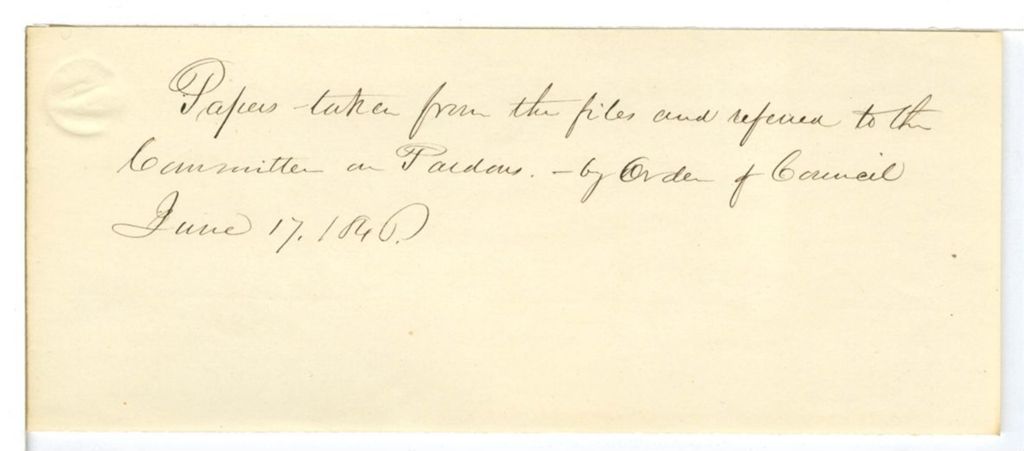 Papers taken from the files and referred to the
Committee on Pardons. - by Order of Council
June 17. 1846.